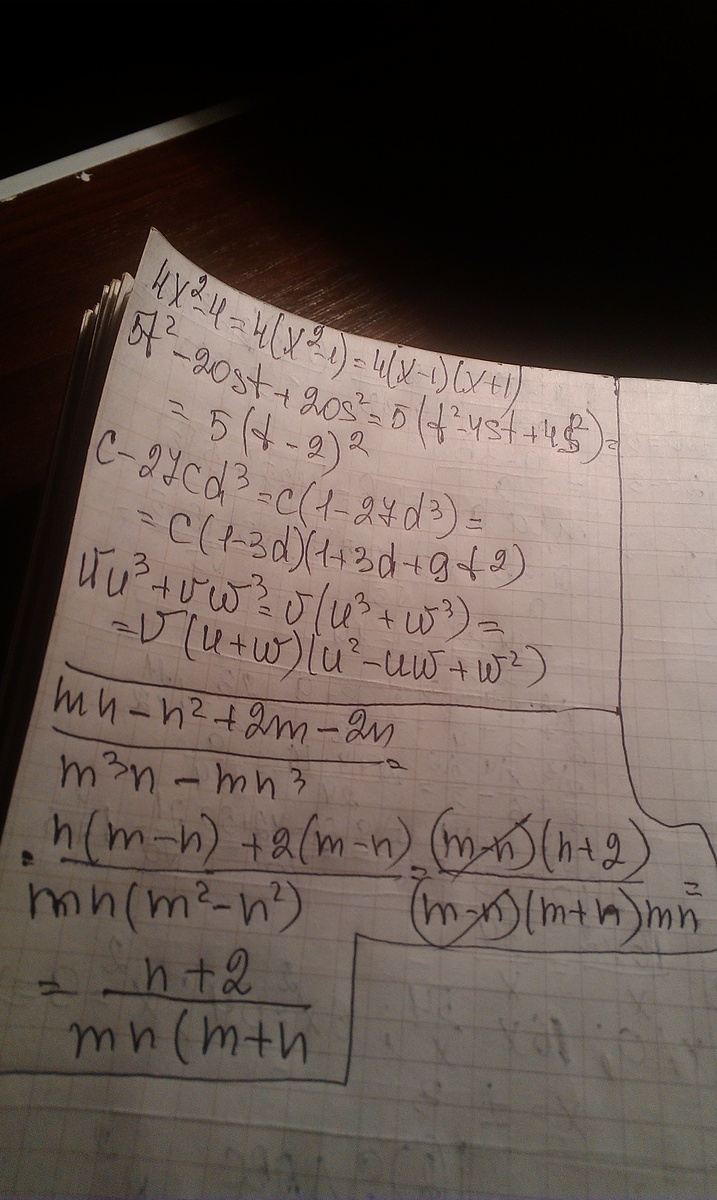 4x²-4=4(x²-1)=4(x-1)(x+1)
5t²-20st+20s²=5(t²-4st+4s²)=
=5(t-2)²
c-27cd³=c(1-27d³)=
=c(1-3d)(1+3d+9d2)
vu³+vw³=v(u³+w³)=
=v(u+w)(u²-uw+w²)
mn-n²+2m-2n
m³n-mn³ =
= n(m-n)+2(m-n) = (m-n)(n+2)
mn(m²-n²) (m-n)(m+n)mn =
= n+2
mn(m+n